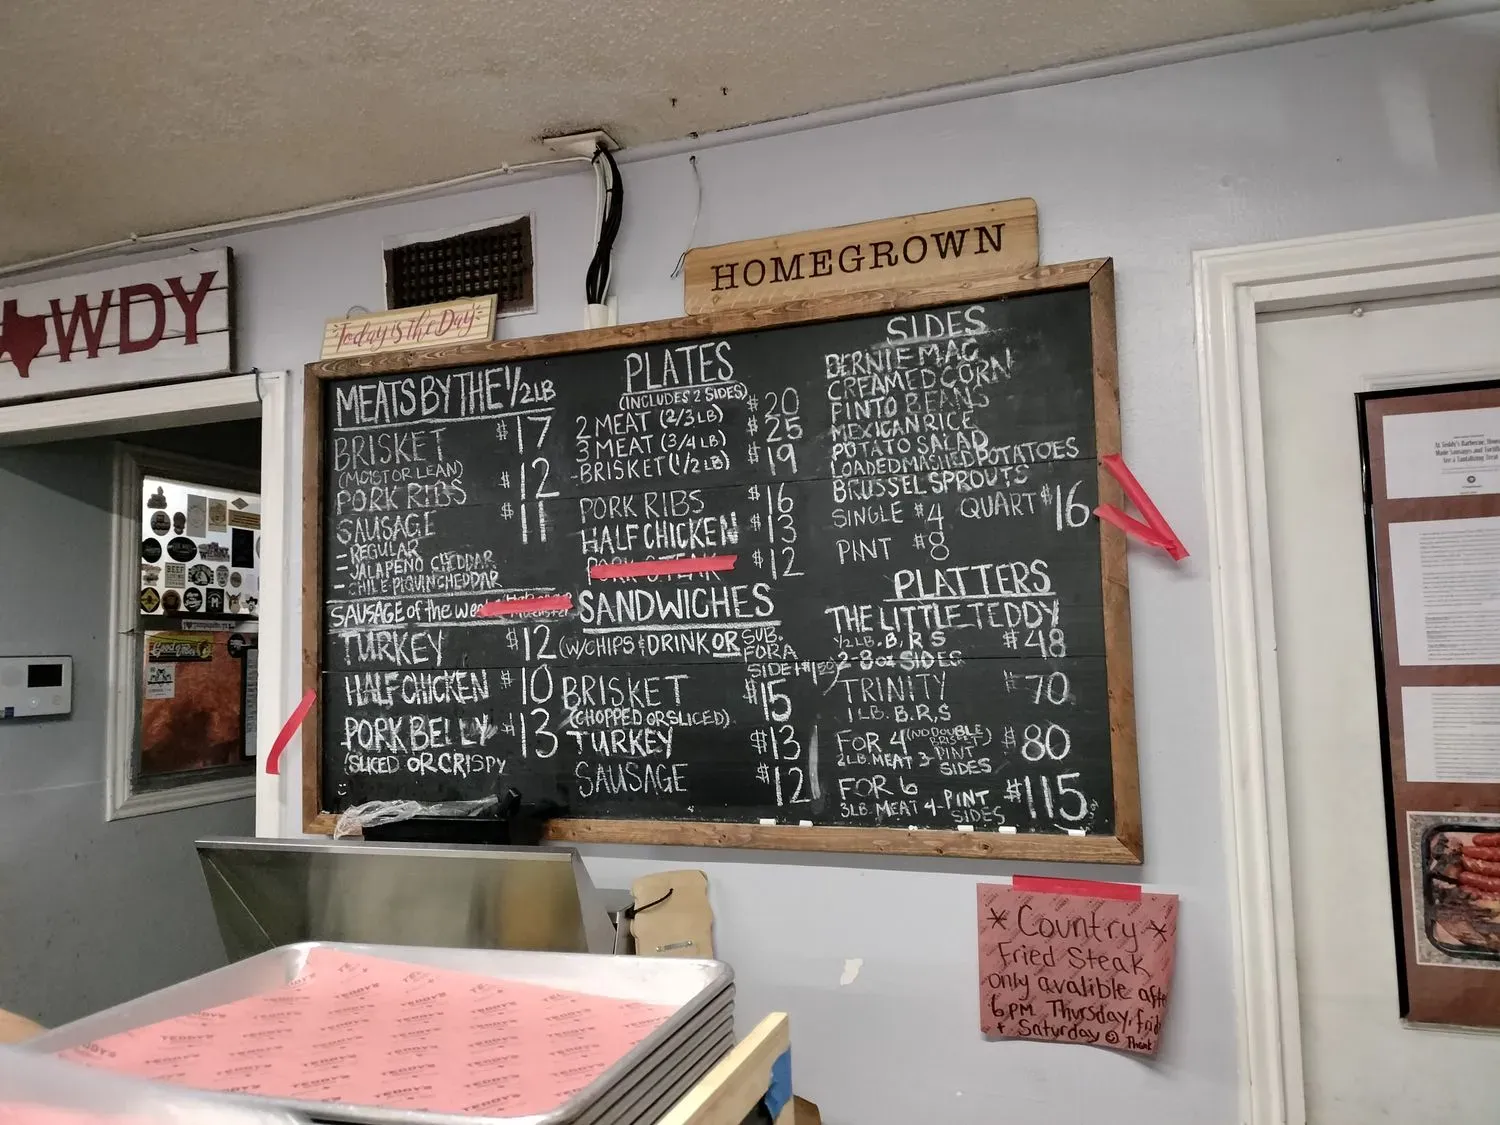 WDY
Today is the Day
HOMEGROWN
MEATS BY THE 1/2 LB
BRISKET $17
(MOIST OR LEAN)
PORK RIBS $12
SAUSAGE $11
- REGULAR
- JALAPENO CHEDDAR
- CHILE PIQUIN CHEDDAR
SAUSAGE of the Week
TURKEY $12
HALF CHICKEN $10
PORK BELLY $13
(SLICED OR CRISPY
PLATES
(INCLUDES 2 SIDES)
2 MEAT (2/3 LB) $20
3 MEAT (3/4 LB) $25
- BRISKET (1/2 LB) $19
PORK RIBS $16
HALF CHICKEN $13
PORK STEAK $12
SANDWICHES
(W/CHIPS & DRINK OR SUB.
FOR A
SIDE + $1.50)
BRISKET $15
(CHOPPED OR SLICED)
TURKEY $13
SAUSAGE $12
SIDES
BERNIE MAC
CREAMED CORN
PINTO BEANS
MEXICAN RICE
POTATO SALAD
LOADED MASHED POTATOES
BRUSSEL SPROUTS
SINGLE $4 QUART $16
PINT $8
PLATTERS
THE LITTLE TEDDY
1/2 LB. B, R, S $48
2-8oz SIDES
TRINITY $70
1 LB. B, R, S
FOR 4 (NO DOUBLE BRISKET) $80
2LB. MEAT 3-PINT
SIDES
FOR 6 $115
3LB. MEAT 4-PINT
SIDES
* Country *
Fried Steak
only avalible afte
6pm Thursday, frid
+ Saturday ☺ Thank
TEDDY'S
At Teddy's Barbecue, House
Made Sausages and Tortill
Are a Tantalizing Treat